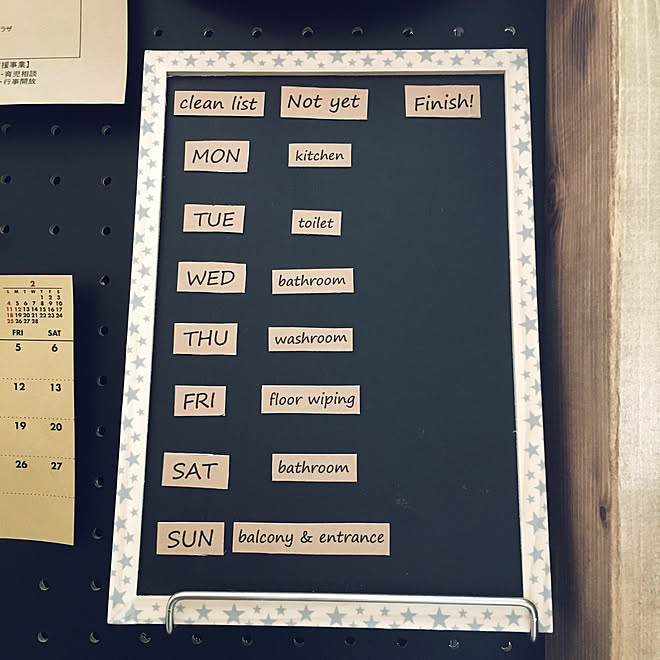 ラザ
援事業】
・育児相談
・行事開放
clean list Not yet Finish!
MON kitchen
TUE toilet
WED bathroom
THU washroom
FRI floor wiping
SAT bathroom
SUN balcony & entrance
2
S M T W T F S
1 2 3
4 5 6 7 8 9 10
11 12 13 14 15 16 17
18 19 20 21 22 23 24
25 26 27 28
FRI SAT
5 6
12 13
19 20
26 27